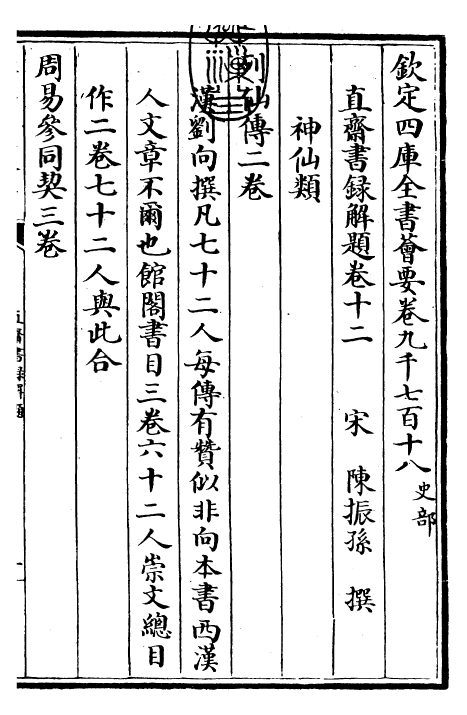 欽定四庫全書薈要卷九千七百十八史部
直齋書録解題卷十二 宋 陳振孫 撰
神仙類
列仙傳二卷
漢劉向撰凡七十二人每傳有贊似非向本書西漢
人文章不爾也館閣書目三卷六十二人崇文總目
作二卷七十二人與此合
周易參同契三卷